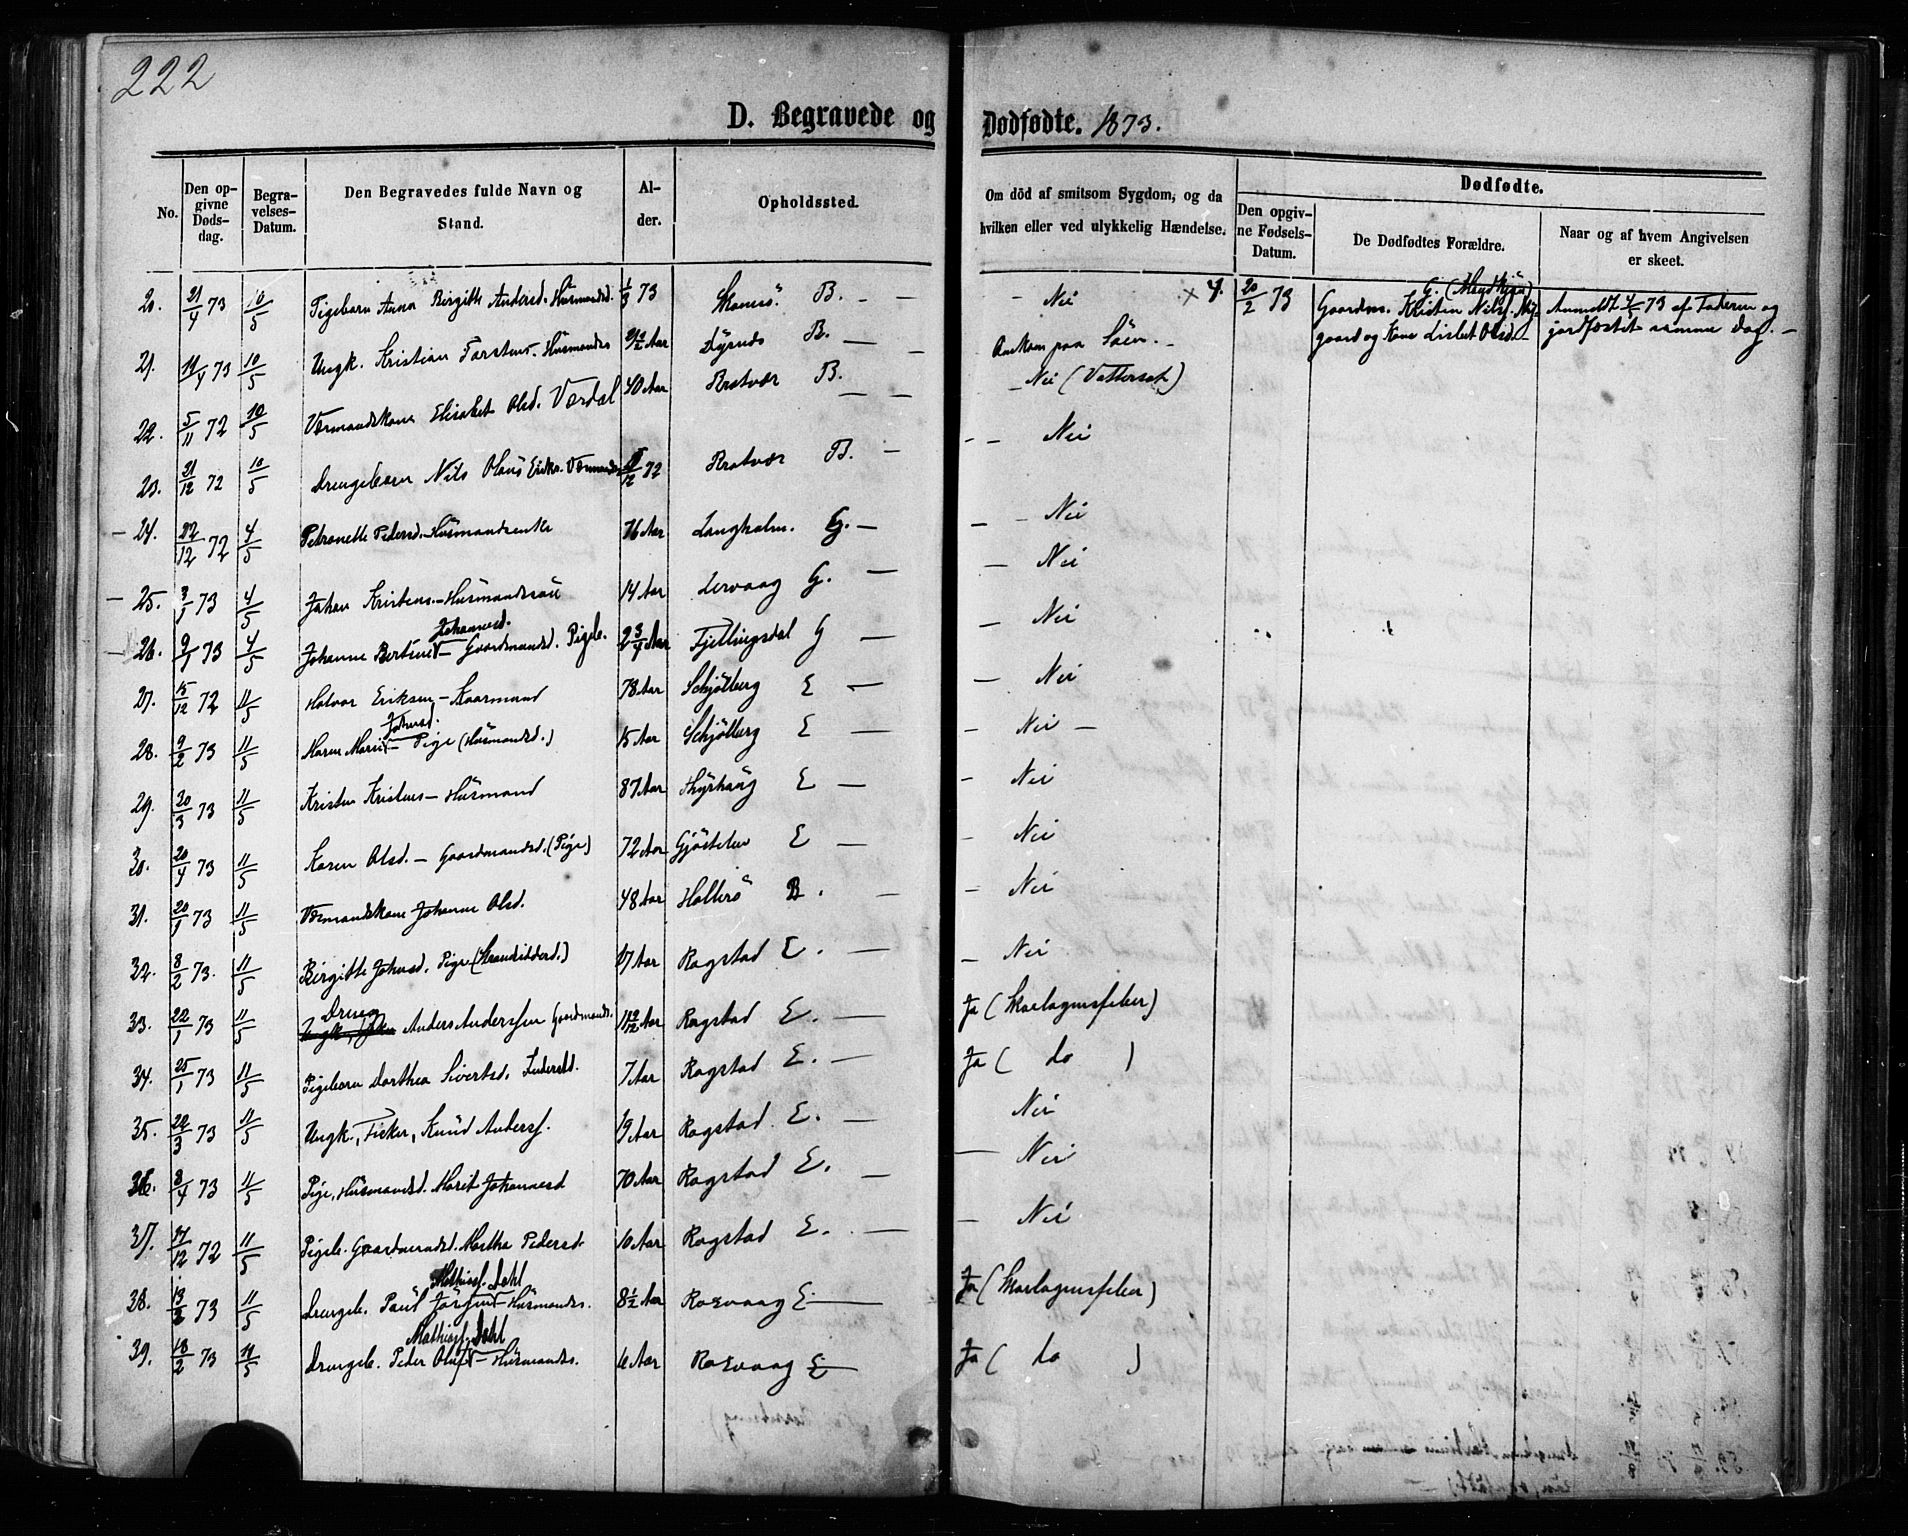 222
D. Begravede og Dødfødte. 1873.
No.
Den opgivne Dødsdag.
Begravelses-Datum.
Den Begravedes fulde Navn og Stand.
Alder.
Opholdssted.
Om död af smitsom Sygdom, og da hvilken eller ved ulykkelig Hændelse.
Dødfødte.
Den opgivne Fødsels-Datum.
De Dødfødtes Forældre.
Naar og af hvem Angivelsen er skeet.
20. 21/4 73 10/5 Pigebarn Anna Birgitte Andersd. Husmandsd. 1/3 73 B. — Nei
× 4. 20/2 73 Gaardm. Kristen Nilss. gaard og Kone Lisbet Olsd. Anmeldt 4/5 73 af Faderen og jordfæstet samme dag. —
21. 19/4 73 10/5 Ungk. Kristian Torstens. Husmands Aar B. — Omkom paa Söen. —
22. 5/11 72 10/5 Værmandskone Elisabet Olsd. Værdal 40 Aar Bratvær B. — Nei (Vattersot)
23. 21/12 72 10/5 Drengebarn Nils Olaus Eriks. /12 72 Bratvær B. — Nei
24. 22/12 72 4/5 Petronelle Pedersd. — Husmandsenke 76 Aar Langholm. G. — Nei
25. 3/1 73 4/5 Johan Kristens. — Husmandssön 14 Aar Lervaag G. — Nei
26. 9/1 73 4/5 Johanne Bertine Johannesd. — Gaardmandsd. Pigeb. 2 3/4 Aar Fjellingsdal G — Nei
27. 15/12 72 11/5 Halvor Eriksen — Kaarmand 78 Aar Schjölberg E — Nei
28. 9/2 73 11/5 Maren Marie Johnsd. — Pige (Husmandsd.) 15 Aar Schjölberg E — Nei —
29. 20/3 73 11/5 Kristen Kristens — Husmand 87 Aar E — Nei
30. 20/4 73 11/5 Karen Olsd. — Gaardmandsd. (Pige) 72 Aar E — Nei
31. 20/1 73 11/5 Værmandskone Johanne Olsd. 48 Aar Hallerö B. — Nei
32. 8/2 73. 11/5 Birgitte Johnsd. Pige (Strandsidderd.) 17 Aar Rogstad E. — Nei
33. 22/1 73 11/5 Dreng Anders Anderssen Gaardmands. Aar Rogstad E. — Ja (Skarlagensfeber)
34. 25/1 73 11/5 Pigebarn Dorthea Sivertsd. Inderstd. 7 Aar Rogstad E. — Ja ( do )
35. 22/3 73 11/5 Ungk., Fisker, Knud Anderss. 19 Aar Rogstad E. — Nei
36. 8/4 73 11/5 Pige, Husmandsd. Marit Johannesd 70 Aar Rogstad E. — Nei
37. 17/12 72 11/5 Pigeb. Gaardmandsd. Martha Pedersd. 10 Aar Rogstad E. — Nei
38. 13/2 73 11/5 Drengeb. Paul Jörgen Mathiass. Dahl — Husmands. 8 1/2 Aar Rosvaag E. — Ja (Skarlagensfeber)
39. 18/2 73 11/5 Drengeb. Peder Oluf Mathiass. Dahl — Husmands. 6 Aar Rosvaag E — Ja ( do )